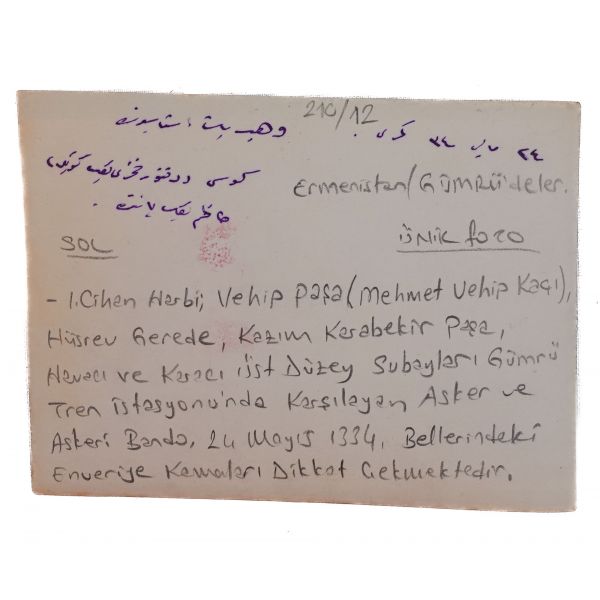 210/12
٢٤ مايس ٣٤
وهيب پاشا استاسيونه
Ermenistan/GÜMRÜ'deler.
SOL
ÜNİK foto
- 1. Cihan Harbi; Vehip Paşa (Mehmet Vehip Kaçı),
Hüsrev Gerede, Kazım Karabekir Paşa,
Havacı ve Karacı Üst Düzey Subayları Gümrü
Tren istasyonu'nda Karşılayan Asker ve
Askeri Bando, 24 Mayıs 1334, Bellerindeki
Enveriye Kamaları Dikkat Çekmektedir.